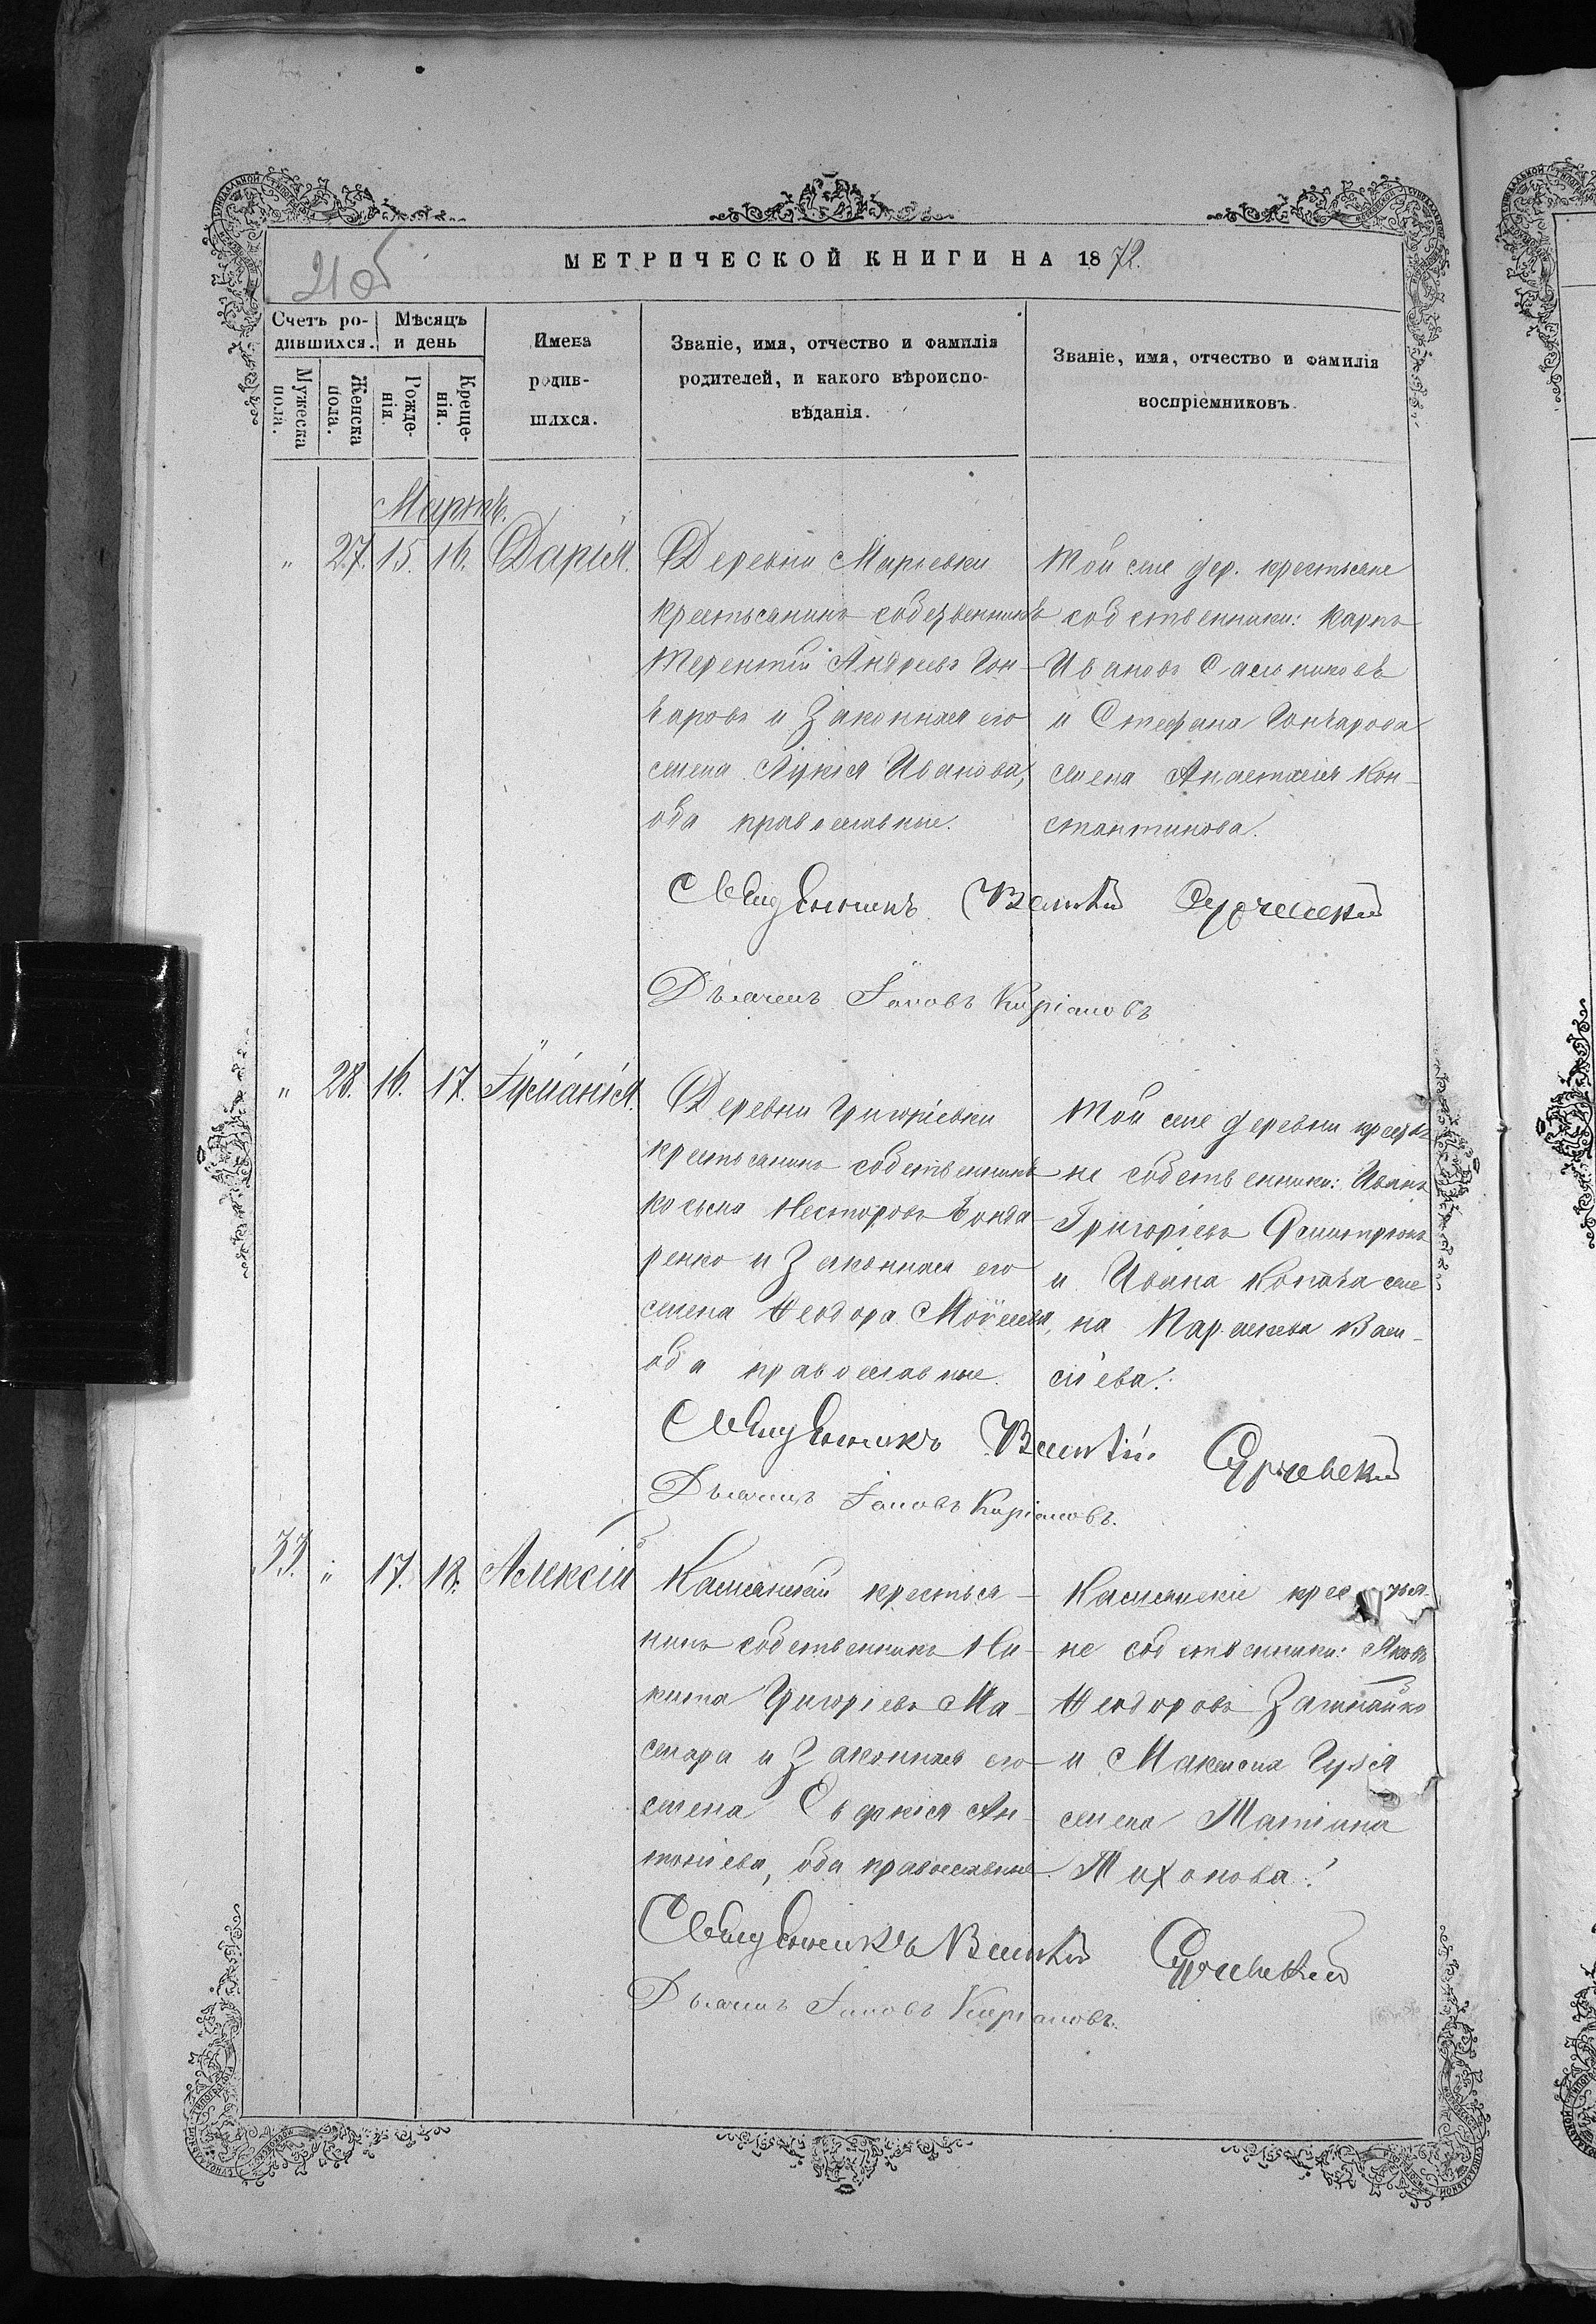 21 об
МЕТРИЧЕСКОЙ КНИГИ НА 1872.
Счетъ ро-
дившихся.
Мѣсяцъ
и день
Мужеска
пола.
Женска
пола.
Рожде-
нія.
Креще-
нія.
Имена
родив-
шихся.
Званіе, имя, отчество и фамилія
родителей, и какого вѣроиспо-
вѣданія.
Званіе, имя, отчество и фамилія
воспріемниковъ.
Мартъ.
" 27. 15. 16. Дарія.
Деревни Марьевки
крестьянинъ собственникъ
Терентій Андреевъ Гон-
чаровъ и законная его
жена Лукія Иванова,
оба православные.
Той же дер. крестьяне
собственники: Карпъ
Ивановъ
и Стефана Гончарова
жена Анастасія Кон-
стантинова.
Священникъ
Дьячекъ Іаковъ Киріаковъ
" 28. 16. 17. Іуліанія.
Деревни Григорьевки
крестьянинъ собственникъ
Косьма Несторовъ Бонда-
ренко и законная его
жена Ѳеодора Моѵсеева,
оба православные.
Той же деревни крестья-
не собственники: Иванъ
Григоріевъ
и Ивана Копача же-
на Параскева Васи-
ліева.
Священникъ
Дьячекъ Іаковъ Киріаковъ.
33. " 17. 18. Алексій
крестья-
нинъ собственникъ Ни-
кита Григоріевъ Ма-
жара и законная его
жена Евфимія Ан-
тоніева, оба православные.
кре тья-
не собственники: Яковъ
Ѳеодоровъ
и Максима
жена Татіана
Тихонова.
Священникъ
Дьячекъ Іаковъ Киріаковъ.